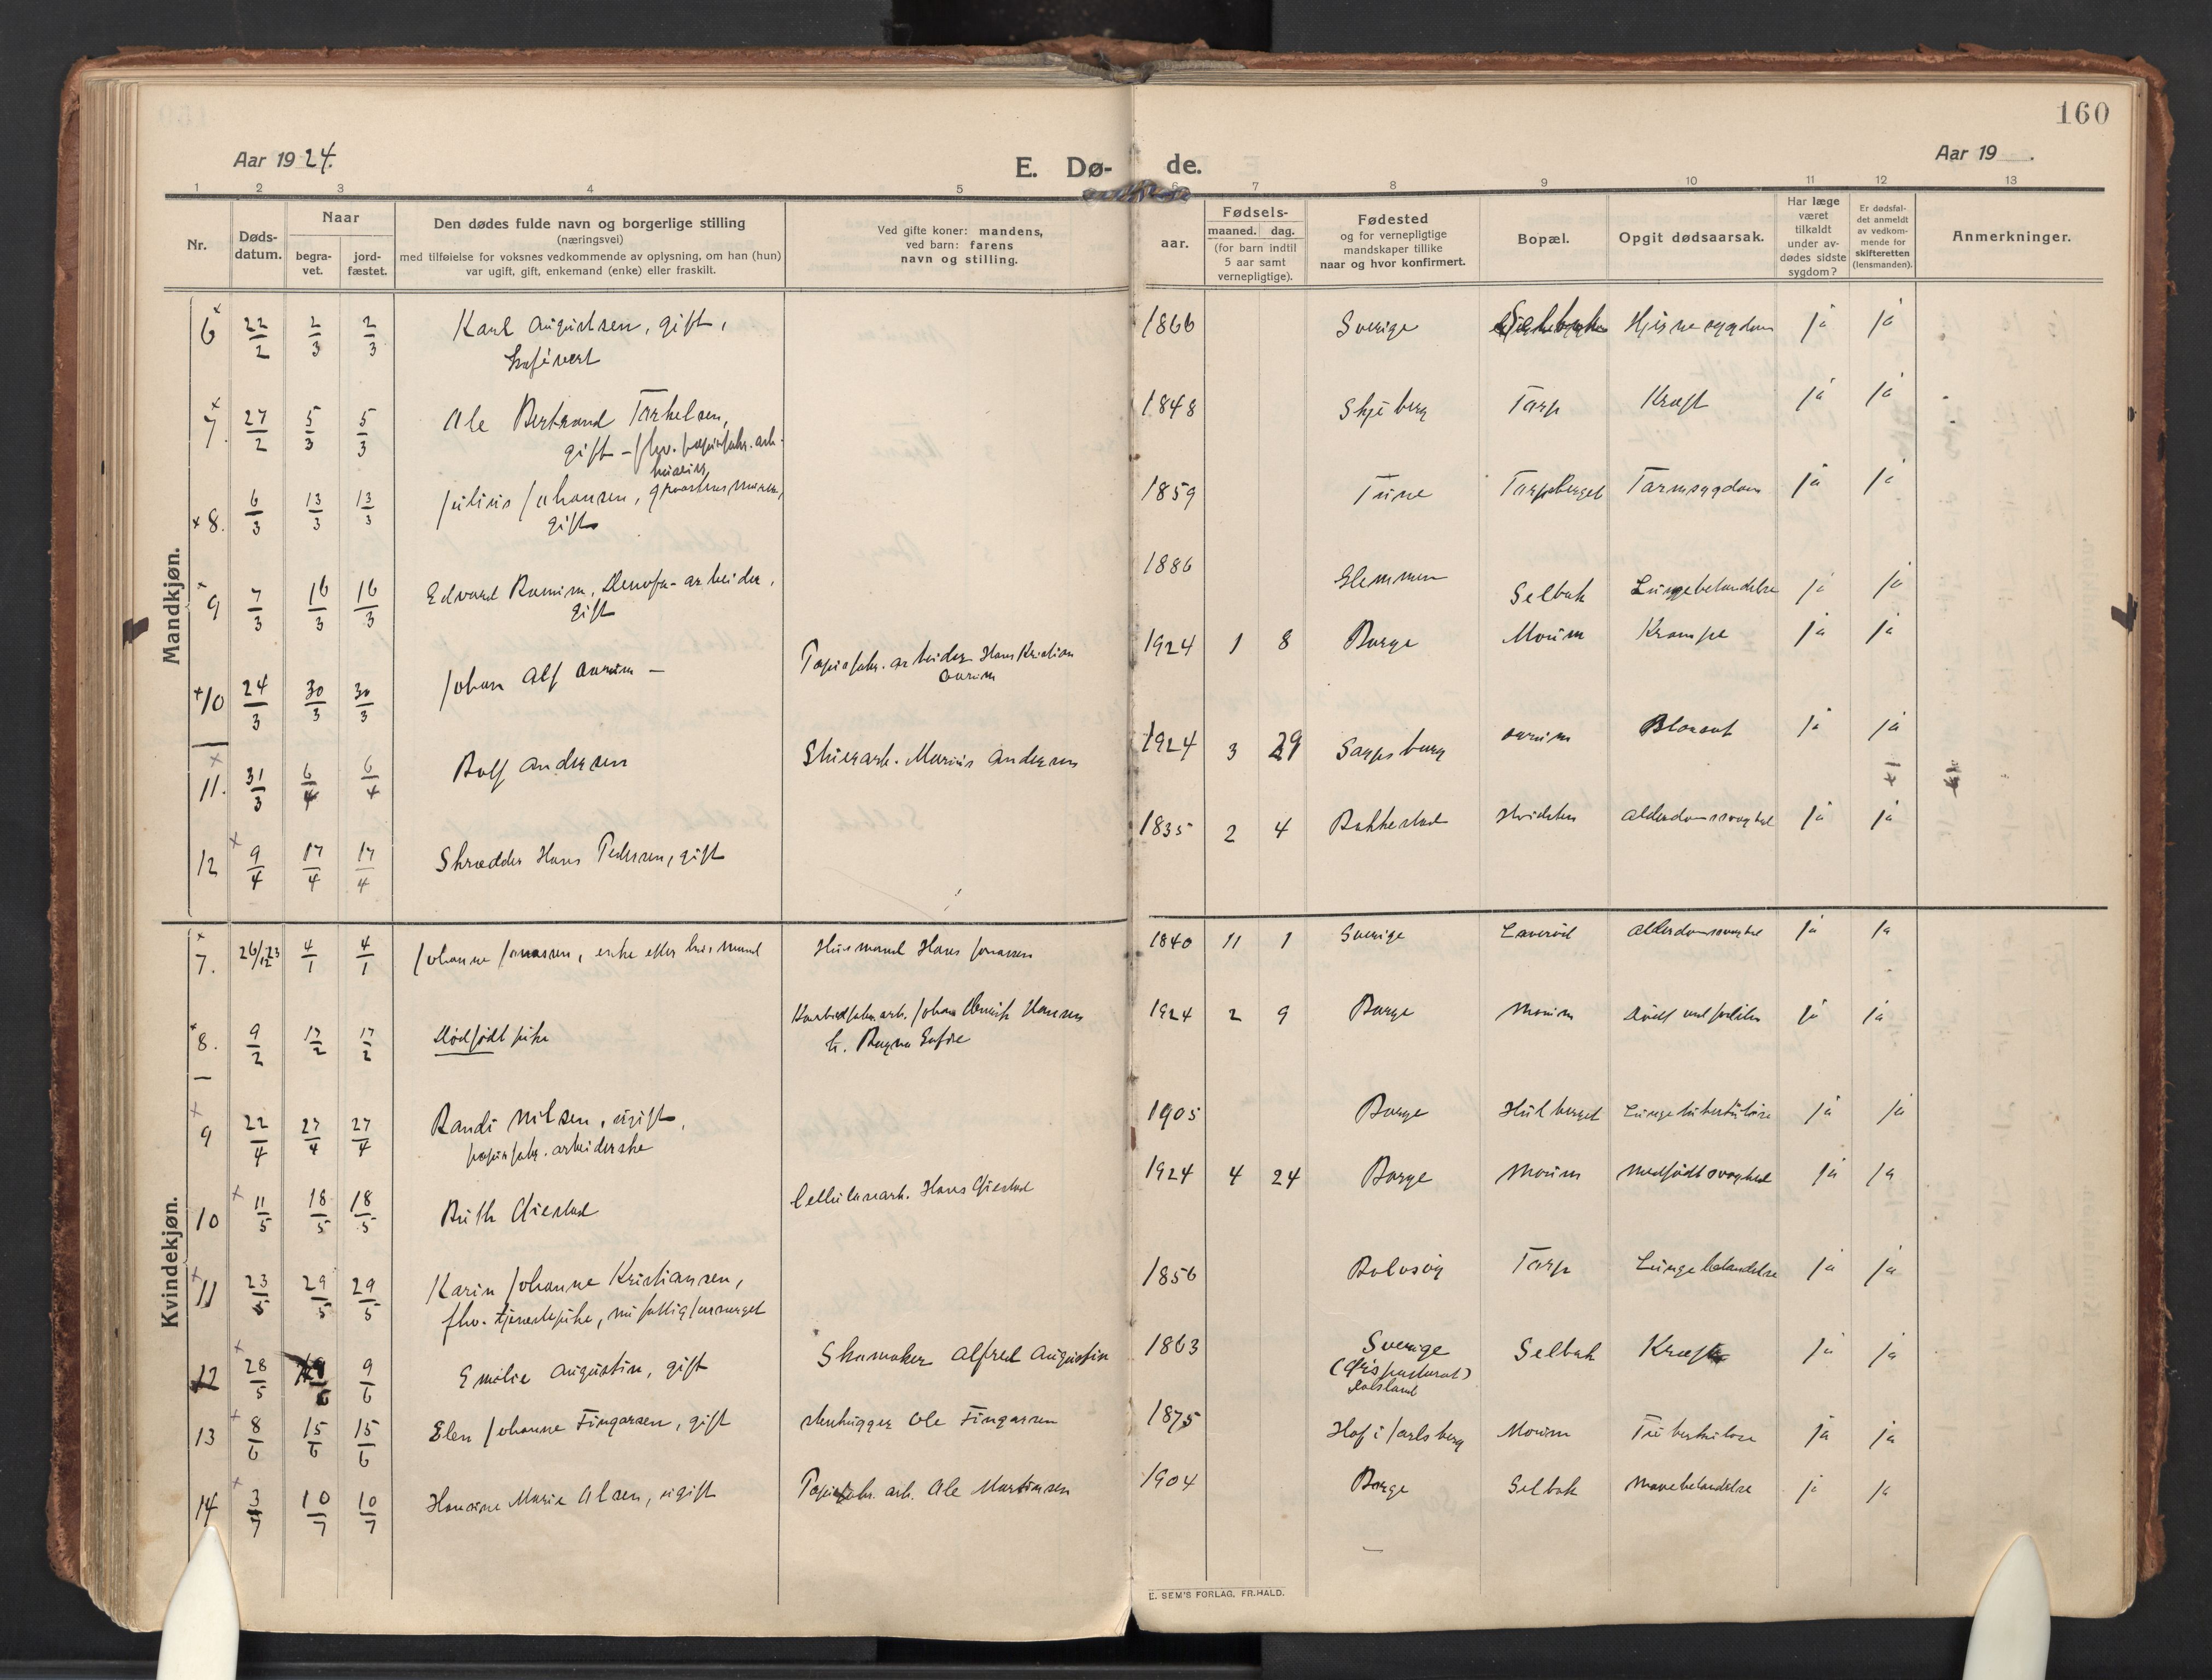 160
Aar 1924.
E. Dø- de.
Aar 19 .
1 2 3 4 5 6 7 8 9 10 11 12 13
Nr.
Døds-
datum.
Naar
begra-
vet.
jord-
fæstet.
Den dødes fulde navn og borgerlige stilling
(næringsvei)
med tilføielse for voksnes vedkommende av oplysning, om han (hun)
var ugift, gift, enkemand (enke) eller fraskilt.
Ved gifte koner: mandens,
ved barn: farens
navn og stilling.
aar.
Fødsels-
maaned. dag.
(for barn indtil
5 aar samt
vernepligtige).
Fødested
og for vernepligtige
mandskaper tillike
naar og hvor konfirmert.
Bopæl.
Opgit dødsaarsak.
Har læge
været
tilkaldt
under av-
dødes sidste
sygdom?
Er dødsfal-
det anmeldt
av vedkom-
mende for
skifteretten
(lensmanden).
Anmerkninger.
Mandkjøn.
6 22/2 2/3 2/3 Karl Augustsen, gift, 1866 Sverige Hjernesygdom ja ja
kafévert
7. 27/2 5/3 5/3 Ole Bertrand Torkelsen, 1848 Skjeberg Torp Kræft ja ja
gift - fhv. papirfabr. arb.
8. 6/3 13/3 13/3 Julius Johansen, 1859 Tune Torpeberget Tarmsygdom ja ja
gift
9 7/3 16/3 16/3 Edvard Ramm, Denofa-arbeider, 1886 Glemmen Selbak Lungebetændelse ja ja
gift
10 24/3 30/3 30/3 Johan Alf Aarum - Papirfabr. arbeider Hans Kristian 1924 1 8 Borge Moum Krampe ja ja
Aarum
11. 31/3 6/4 6/4 Rolf Andersen Skiferarb. Marius Andersen 1924 3 29 Sarpsborg Aarum ja ja
12 9/4 17/4 17/4 Skrædder Hans Pedersen, gift 1835 2 4 Bakkestad Hvidsten Alderdomssvaghed ja ja
Kvindekjøn.
7. 26/12 23 4/1 4/1 Johanne Jonassen, enke efter husmand Husmand Hans Jonassen 1840 11 1 Sverige Alderdomssvaghed ja ja
8. 9/2 17/2 17/2 Dødfødt pike Johan Henrik Hansen 1924 2 9 Borge Moum Død ved fødselen ja ja
h. Ragna Sofie
9 22/4 27/4 27/4 Randi Nilsen, ugift, 1905 Borge Hulberget Lungetuberkulose ja ja
papirfabr. arbeiderske
10 11/5 18/5 18/5 Ruth Giestad Cellulosearb. Hans Giestad 1924 4 24 Borge Moum Medfødt svaghed ja ja
11 23/5 29/5 29/5 Karin Johanne Kristiansen, 1856 Rolvsøy Torp Lungebetændelse ja ja
fhv. tjenestepike, nu fattigforsørget
12 28/5 9/6 Emilie Augustin, gift Skomaker Alfred Augustin 1863 Sverige Selbak Kræft ja ja
Dalsland
13 8/6 15/6 15/6 Elen Johanne Fingarsen, gift Stenhugger Ole Fingarsen 1875 Hof i Jarlsberg Moum Tuberkulose ja ja
14 3/7 10/7 10/7 Hansine Marie Olsen, ugift Papirfabr. arb. Ole Martinsen 1904 Borge Selbak Mavebetændelse ja ja
E. SEM'S FORLAG, FR.HALD.